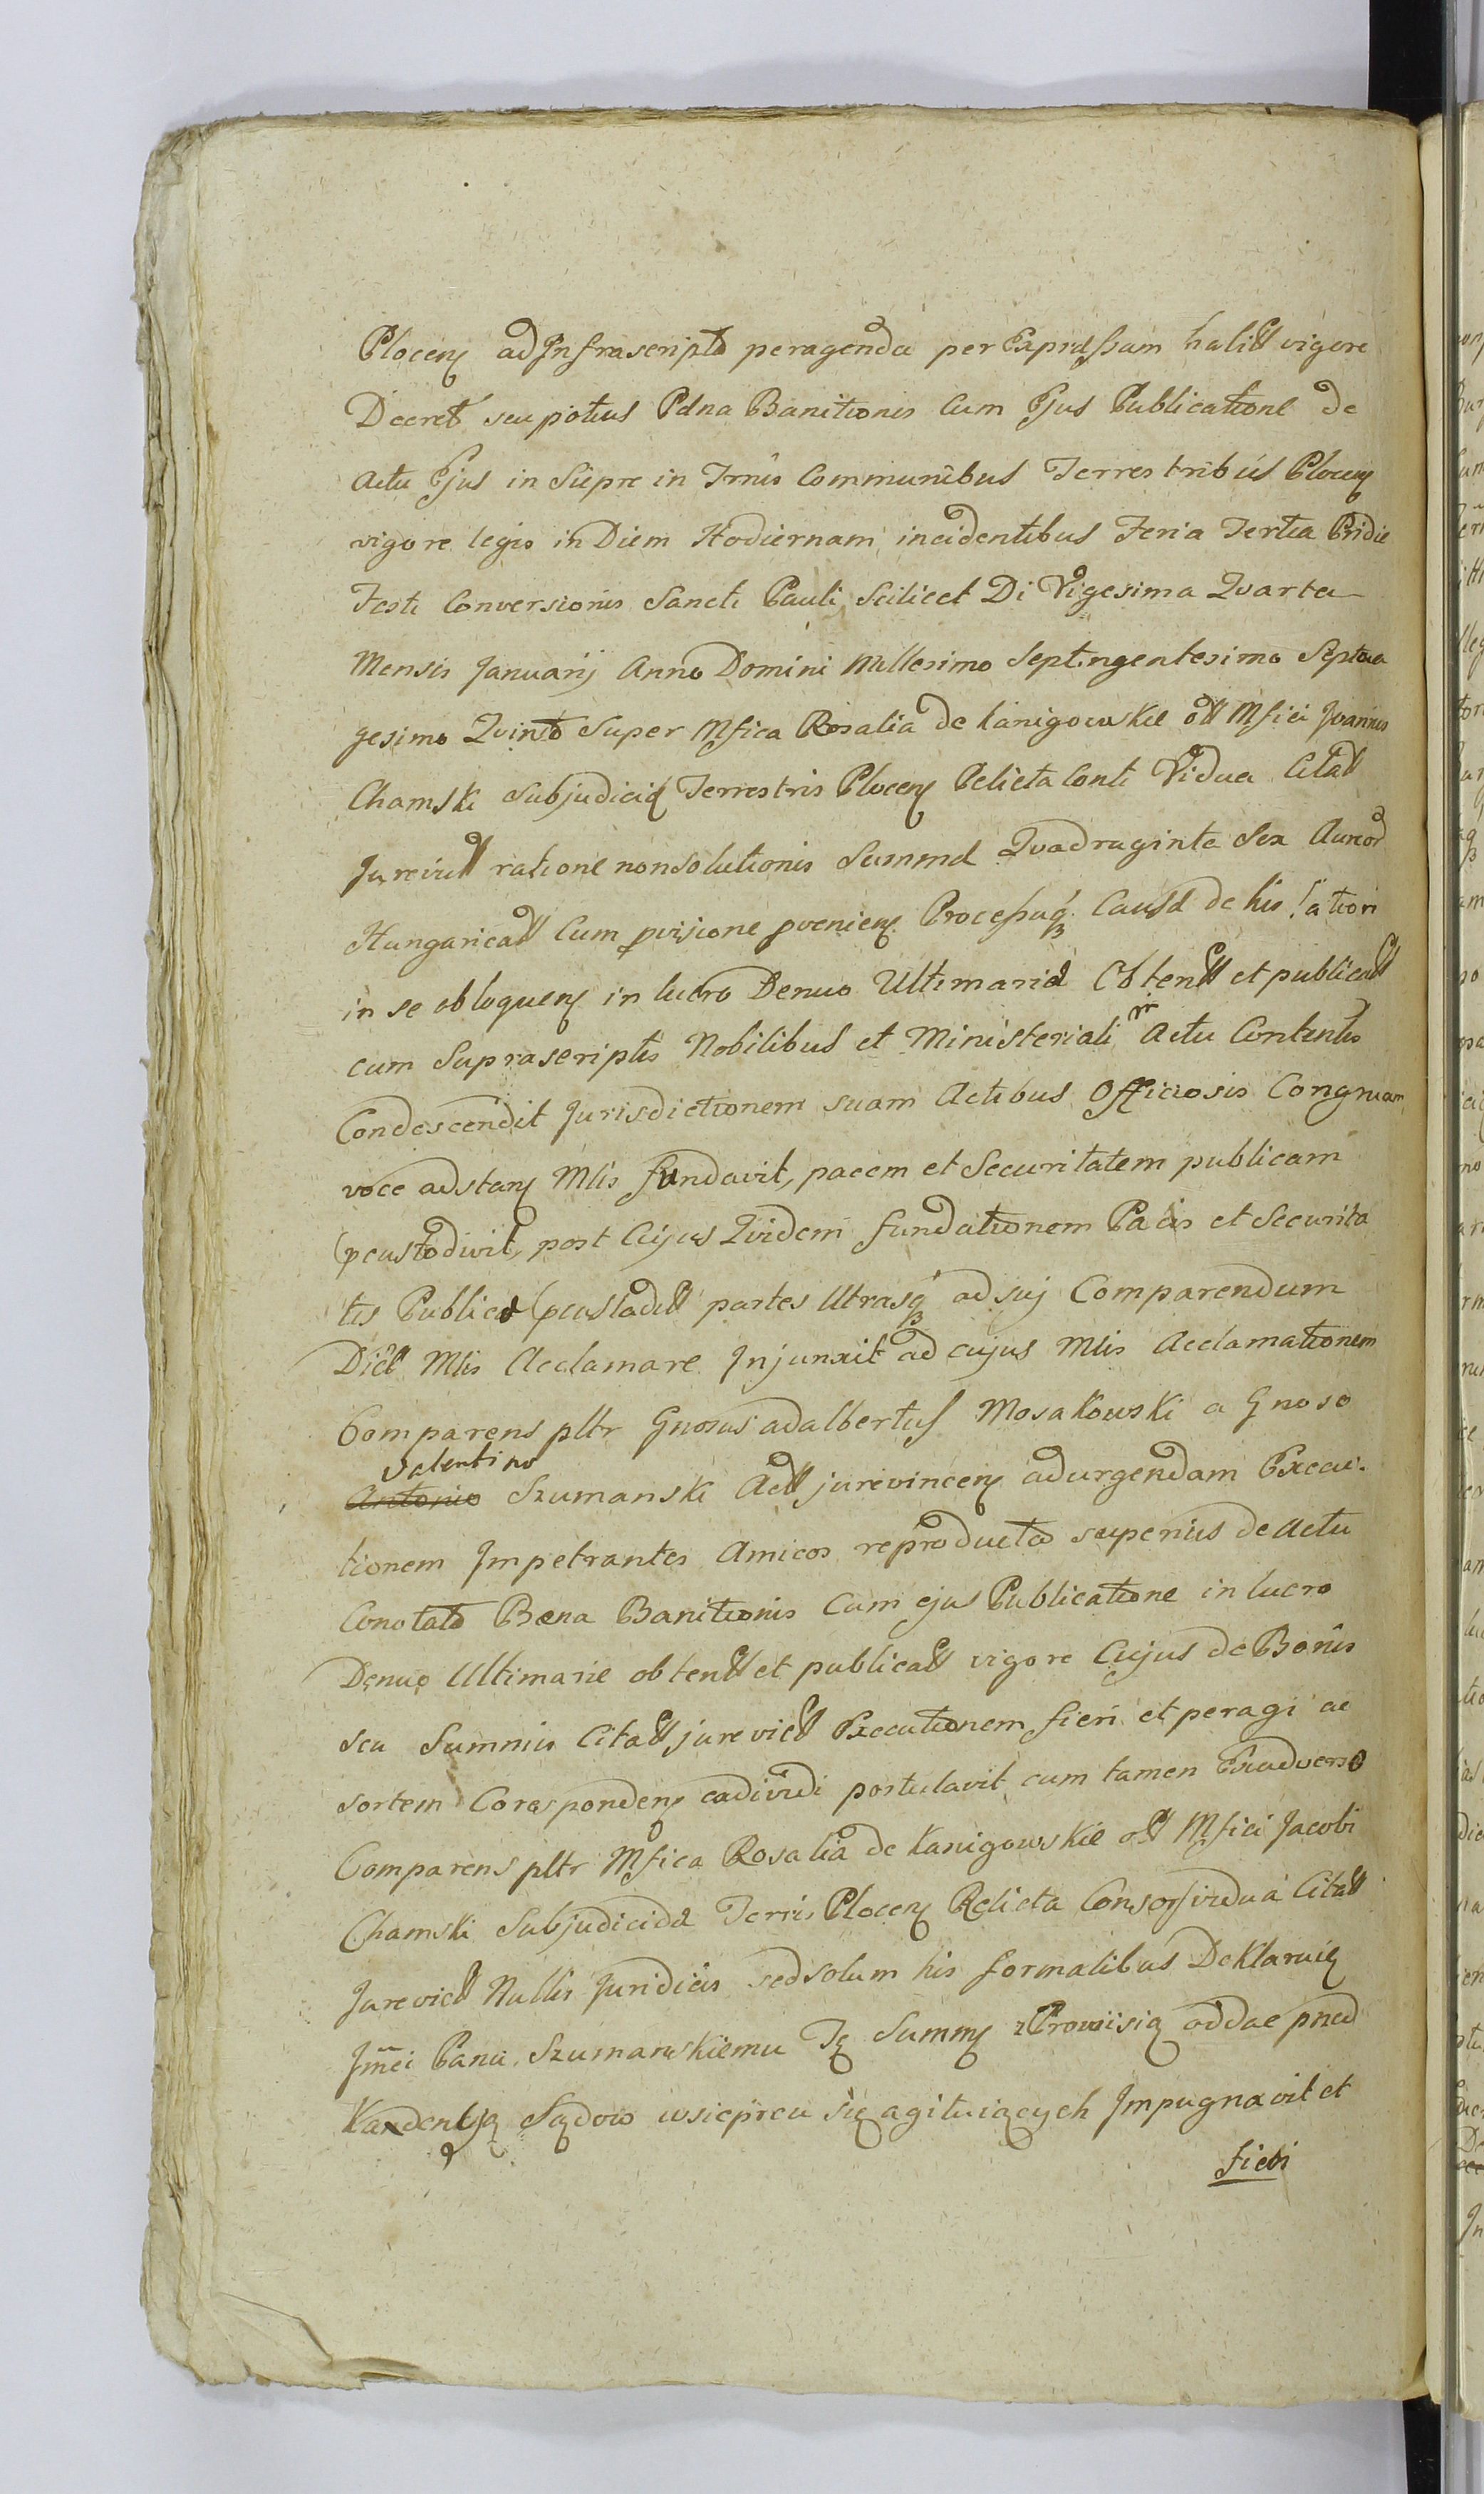 Plocen adInfrascripta peragenda per Expressam habitt vigore
Decret seu potius Pæna Banitionis Cum Ejus Publicatione de
actu Ejus in Siepre in Trnis Communibus Terrestribus Plocen
vigore legis in Diem Hodiernam incidentibus Feria Tertia Pridie
Festi Conversionis Sancti Pauli Scilicet Di Vigesima Qvarta
Mensis Januarij Anno Domini Millesimo Septingentesimo Septua
gesimo Qvinto Super Mfica Rosalia de Kanigowskie ott Mfici Joannis
Chamski Subjudicis Terrestris Plocen Relicta Conti Vidua Citatt
Jurevictt ratione nonsolutionis Summæ Qvadraginta Sex Aureor
Hungaricatt Cum pvisione pvenien Processuq Causæ de his
in se obloquen in lucro Denuo Ultimarie Obtentt et publicatt
cum Suprascriptis Nobilibus et Ministeriali in Actu Contentis
Condescendit Jurisdictionem suam Actibus Officiosis Congruam
voce adstan Mlis fundavit, pacem et Securitatem publicam
pcustodivit, post Cujus Qvidem fundationem Pacis et Securita
tis Publicæ pcustoditt partes Utrasq ad suj Comparendum
Dictt Mlis Acclamare Injunxit ad cujus Mlis Acclamationem
Comparens pltr Gnosus adalbertus Mosakowski a Gnoso
Valentino
Antonio Szumanski Actt jurevincen adurgendam Execu-
tionem Impetrantes Amicos reproducto superius de Actu
Conotato Pæna Banitionis Cum ejus Publicatione in lucro
Denuo Ultimarie obtentt et publicatt vigore Cujus de Bonis
seu Summis Citatt jurevictt Executionem fieri et peragi ac
sortem Coresponden eadividi postulavit, cum tamen Exadverso
Comparens pltr Mfica Rosalia de Kanigowskie ott Mfici Jacobi
Chamski Subjudicis Terris Plocen Relicta Consors vidua Citatt
Jurevictt Nullis Juridicis sed solum his formalibus Deklaruię
Jmci Panu Szumanskiemu Tę Summę z Prowizią oddac przed
Kandencyą Sądow wsieprcu się agituiących Impugnavit et
fieri